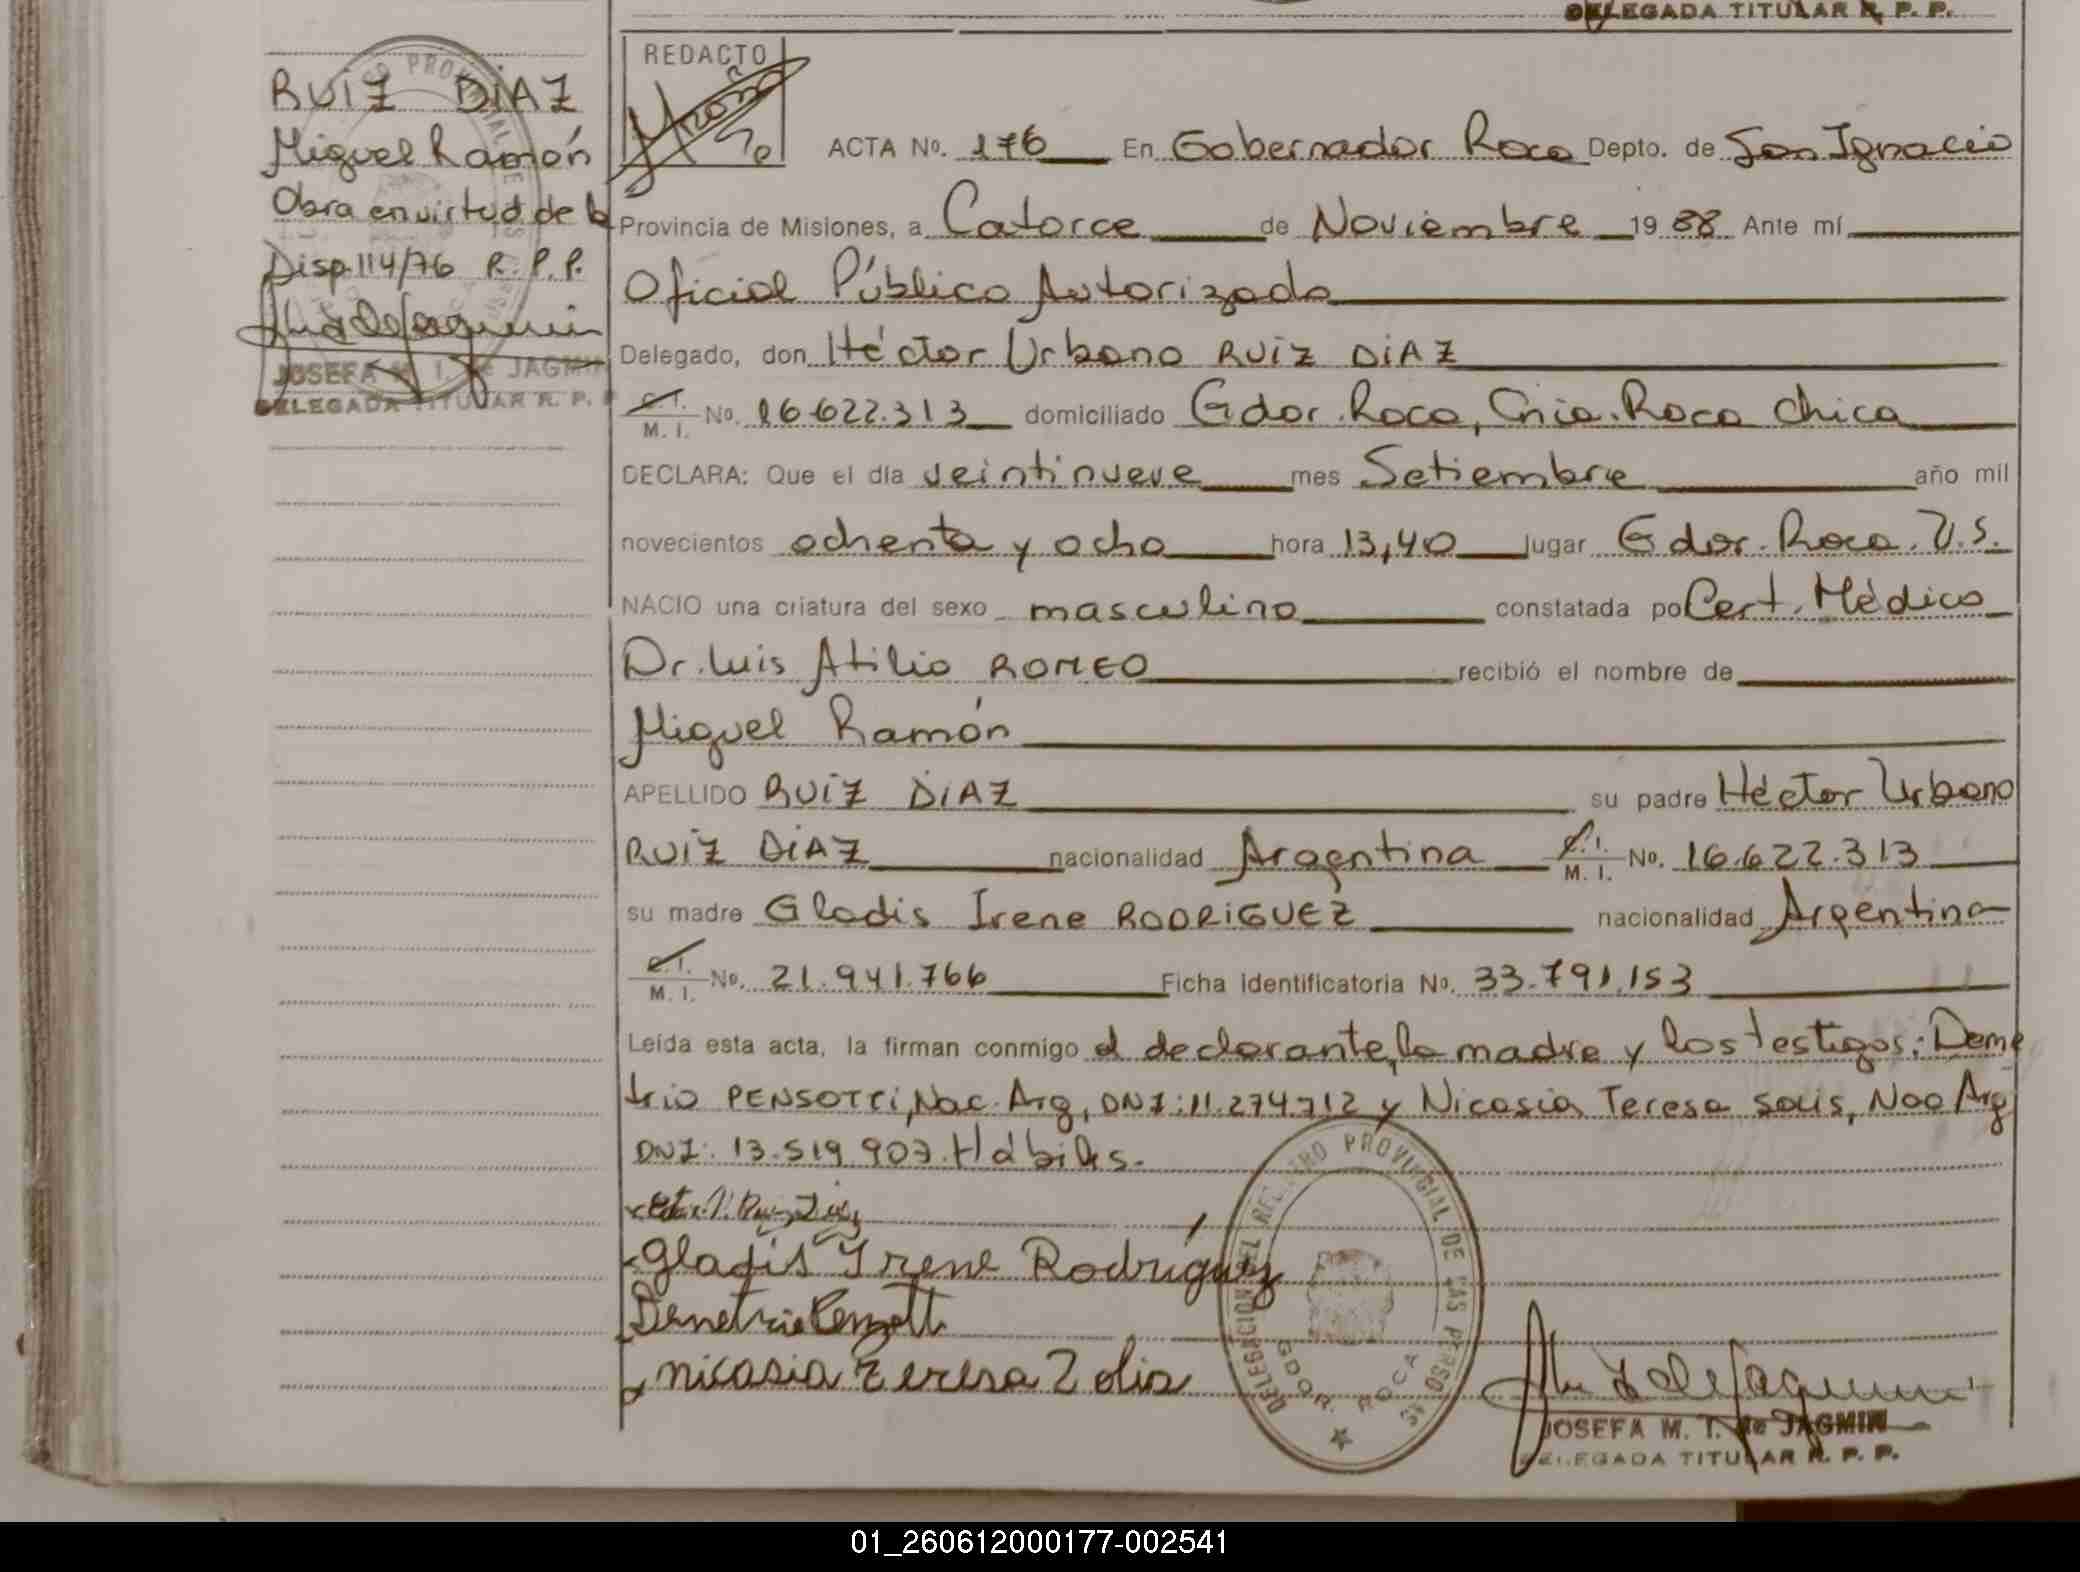 DELEGADA TITULAR R. P. P.
RUIZ DIAZ
Miguel Ramón
Obra en virtud de la
Disp. 114/76 R. P. P.
JOSEFA M. T. de JAGMIN
DELEGADA TITULAR R. P. P.
REDACTO
ACTA No. 176 En Gobernador Roca Depto. de San Ignacio
Provincia de Misiones, a Catorce de Noviembre 1988 Ante mí
Oficial Público Autorizado
Delegado, don Héctor Urbano RUIZ DIAZ
C.I. M. I. No. 16.622.313 domiciliado Gdor. Roca, Cnia. Roca Chica
DECLARA: Que el día veintinueve mes Setiembre año mil
novecientos ochenta y ocho hora 13,40 lugar Gdor. Roca. U.S.
NACIO una criatura del sexo masculino constatada po Cert. Médico
Dr. Luis Atilio ROMEO recibió el nombre de
Miguel Ramón
APELLIDO RUIZ DIAZ su padre Héctor Urbano
RUIZ DIAZ nacionalidad Argentina C.I. M. I. No. 16.622.313
su madre Gladis Irene RODRIGUEZ nacionalidad Argentina
C.I. M. I. No. 21.941.766 Ficha identificatoria No. 33.791.153
Leída esta acta, la firman conmigo el declarante, la madre y los testigos: Deme
trio PENSOTTI, Nac. Arg, DNI: 11.274.712 y Nicasia Teresa SOLIS, Nac Arg
DNI: 13.519.903. Hábiles.
Gladis Irene Rodríguez
Demetrio Pensotti
nicasia Teresa Zolis
DELEGACION EL REGISTRO PROVINCIAL DE LAS PERSONAS
GDOR. ROCA
JOSEFA M. T. de JAGMIN
DELEGADA TITULAR R. P. P.
01_260612000177-002541